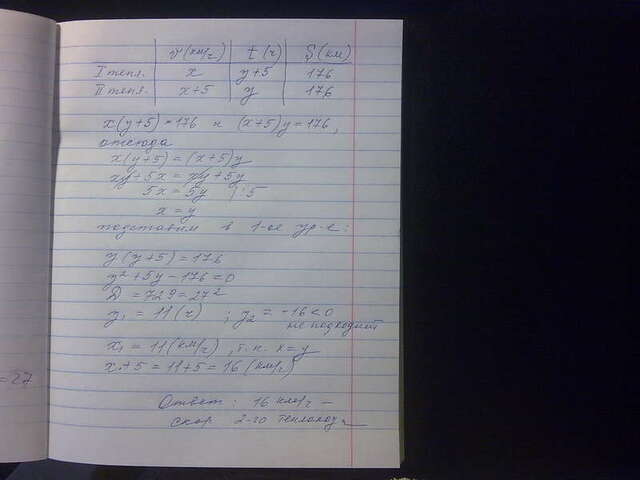 v (км/ч) t (ч) S (км)
I тепл. x y+5 176
II тепл. x+5 y 176
x(y+5)=176 и (x+5)y=176,
отсюда
x(y+5)=(x+5)y
xy+5x=xy+5y
5x=5y |:5
x=y
подставим в 1-ое ур-е:
y(y+5)=176
y²+5y-176=0
D=729=27²
y₁=11(ч) ; y₂=-16<0
не подходит
x₁=11(км/ч), т.к. x=y
x+5=11+5=16(км/ч)
=27
Ответ: 16 км/ч –
скор 2-го теплохода